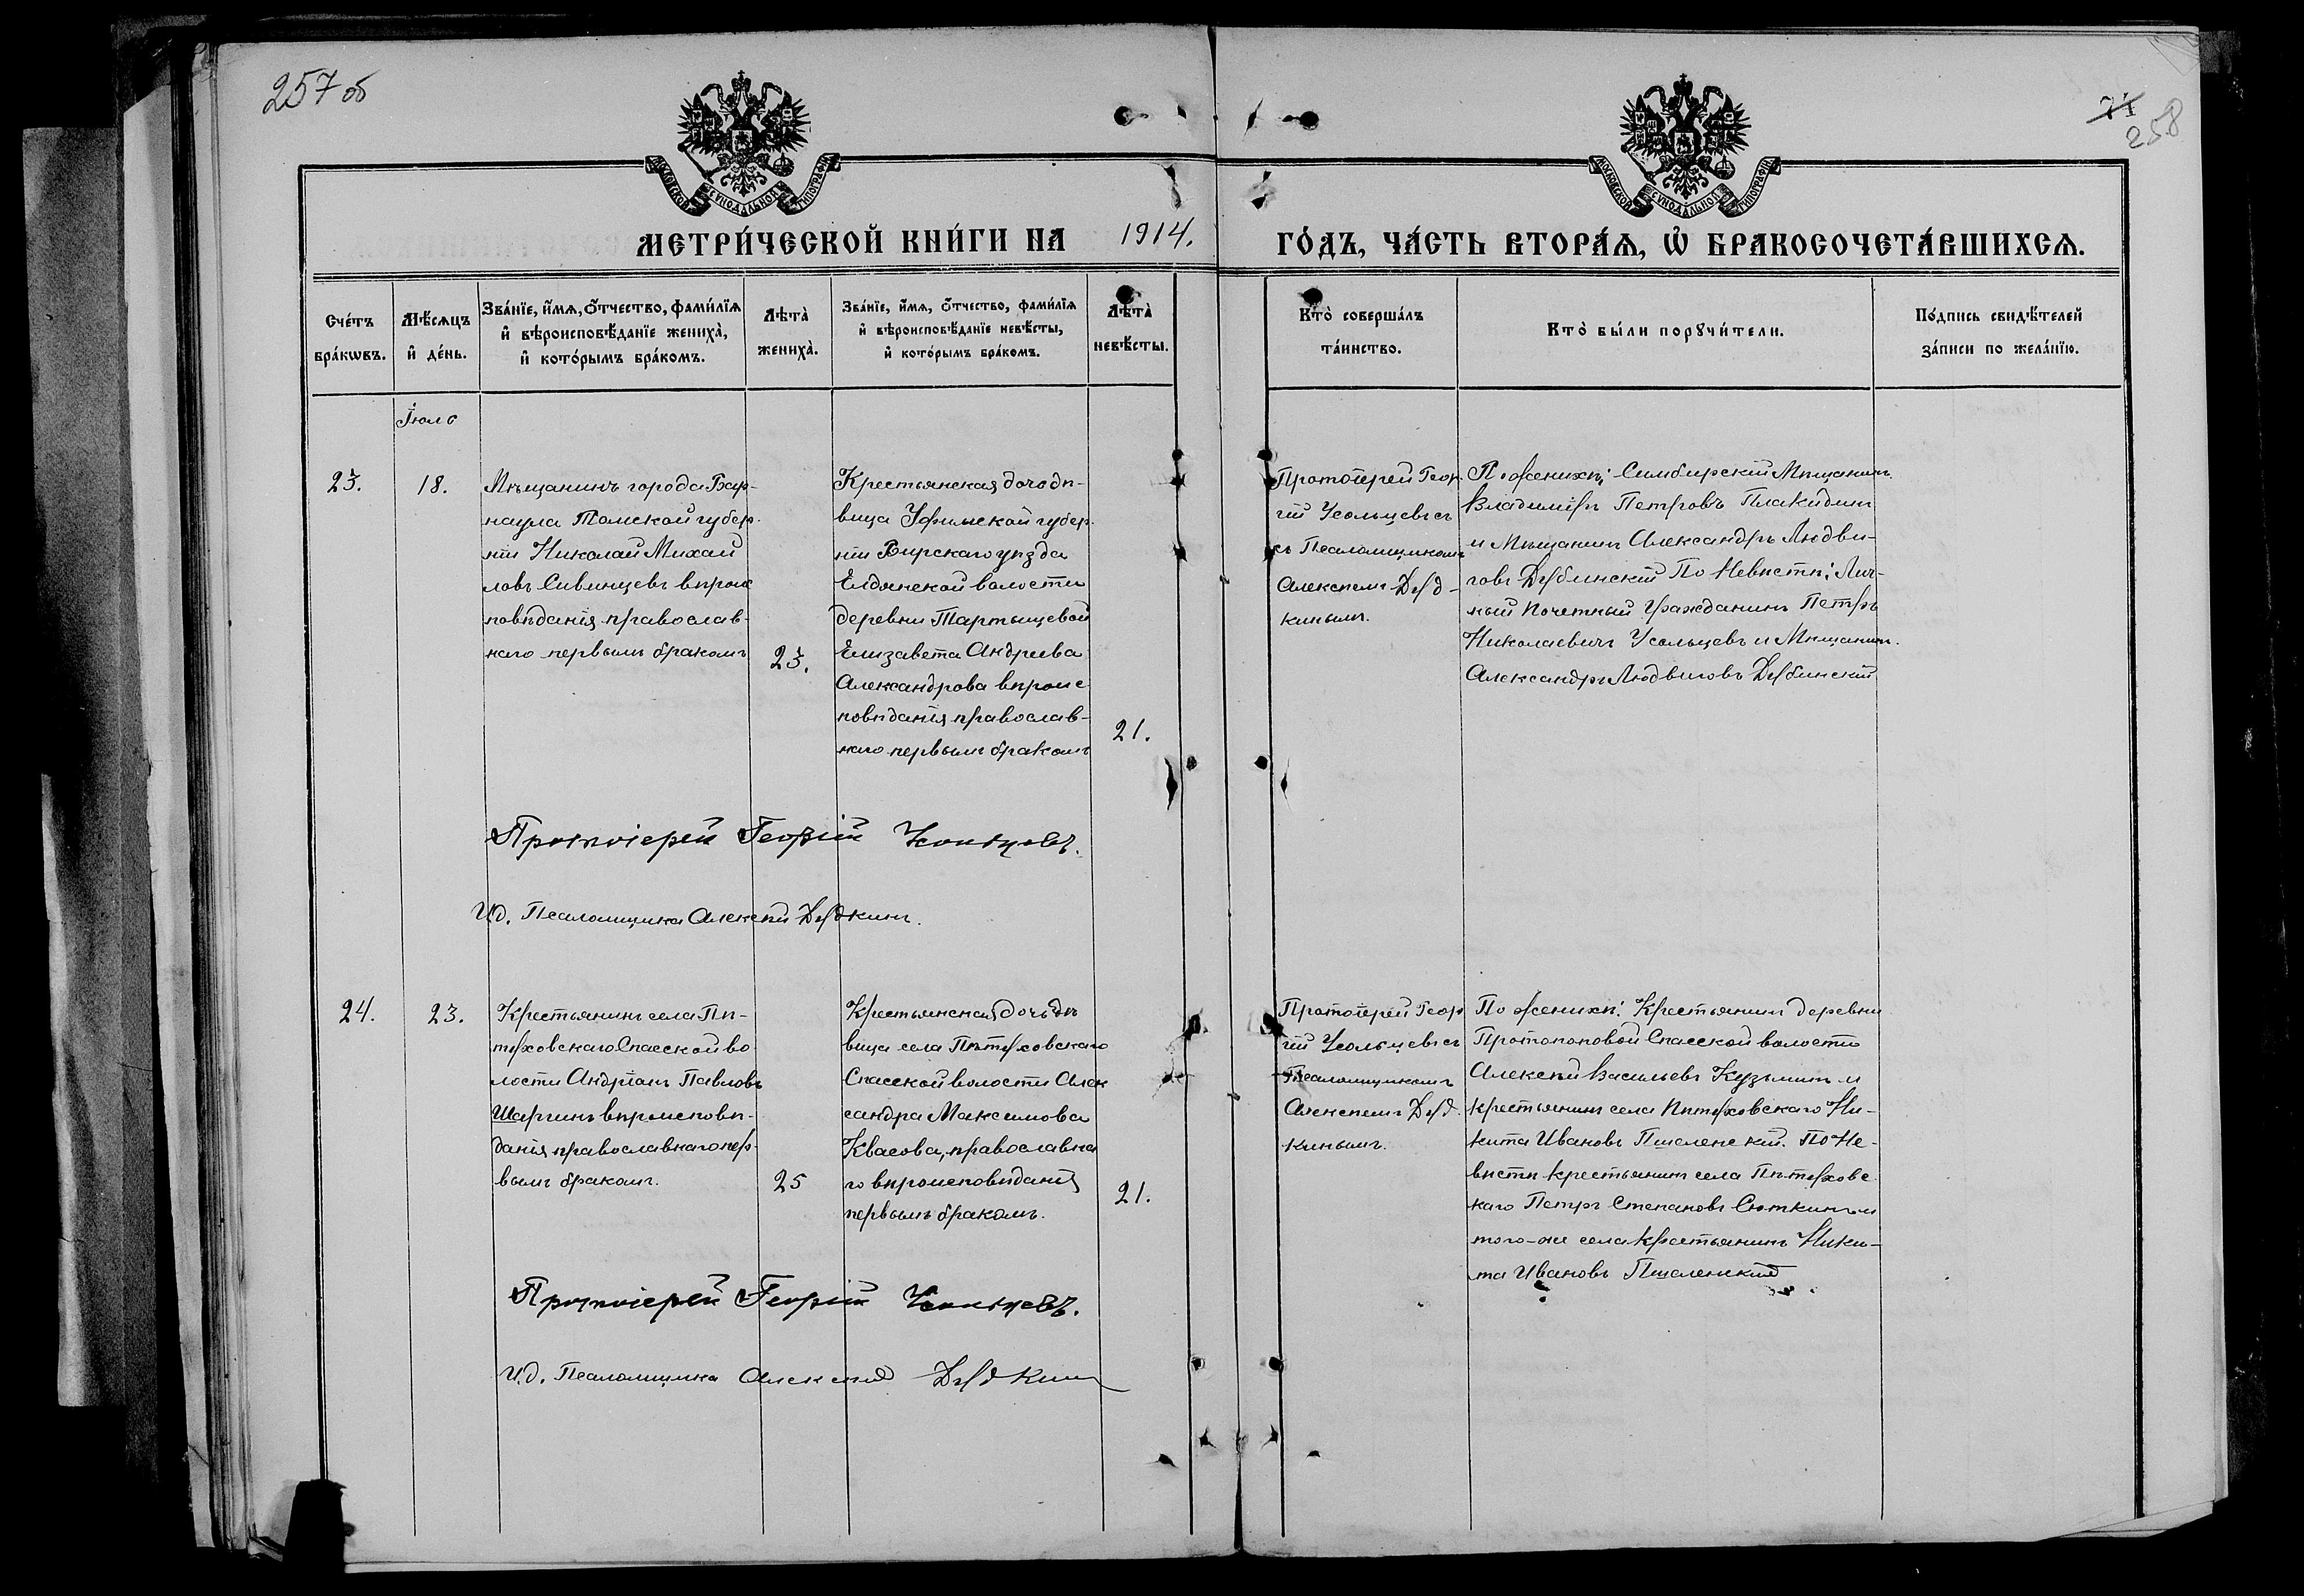 257 об
258
МОСКОВСКОЙ СѴНОДАЛЬНОЙ ТИПОГРАФІИ
МОСКОВСКОЙ СѴНОДАЛЬНОЙ ТИПОГРАФІИ
МЕТРИ́ЧЕСКОЙ КНИ́ГИ НА 1914. ГО́ДЪ, ЧА́СТЬ ВТОРА́Я, Ѡ҆ БРАКОСОЧЕТА́ВШИХСѦ.
Сче́тъ бра́кѡвъ.
Мѣ́сѧцъ и҆ де́нь.
Зва́нїе, и҆́мѧ, ѻ҆́тчество, фами́лїѧ
и҆ вѣроисповѣ́данїе жениха̀,
и҆ кото́рымъ бра́комъ.
Лѣ́та̀ жениха̀.
Зва́нїе, и҆́мѧ, ѻ҆́тчество, фами́лїѧ
и҆ вѣроисповѣ́данїе невѣ́сты,
и҆ кото́рымъ бра́комъ.
Лѣ́та̀ невѣ́сты.
Кто̀ соверша́лъ
та́инство.
Кто̀ бы́ли порꙋчи́тели.
По́дпись свидѣ́телей
за́писи по жела́нїю.
Іюль
23.
18.
Мѣщанинъ города Бар-
наула Томской губер-
ніи Николай Михай
ловъ Сивинцевъ вѣроис
повѣданія православ-
наго первымъ бракомъ
23.
Крестьянская дочь дѣ-
вица Уфимской губер-
ніи Бирскаго уѣзда
Елдякской волости
деревни Тартышевой
Елизавета Андреева
Александрова вѣроис
повѣданія православ-
наго первымъ бракомъ
21.
Протоіерей Геор-
гій Усольцевъ съ
съ Псаломщикомъ
Алексѣемъ Дуд-
кинымъ.
По женихѣ: Симбирскій Мѣщанинъ
Владиміръ Петровъ Плакидинъ
и Мѣщанинъ Александръ Людви-
говъ Дубинскій По Невѣстѣ: Лич-
ный Почетный Гражданинъ Петръ
Николаевичъ Усольцевъ и Мѣщанинъ
Александръ Людвиговъ Дубинскій
Протоіерей Георгій Усольцевъ.
И.д. Псаломщика Алексѣй Дудкинъ.
24.
23.
Крестьянинъ села Пѣ-
туховскаго Спасской во
лости Андріанъ Павловъ
Шаргинъ вѣроисповѣ-
данія православнаго пер-
вымъ бракомъ.
25
Крестьянская дочь дѣ
вица села Пѣтуховскаго
Спасской волости Алек
сандра Максимова
Квасова, православна
го вѣроисповѣданія
первымъ бракомъ.
21.
Протоіерей Геор
гій Усольцевъ съ
Псаломщикомъ
Алексѣемъ Дуд-
кинымъ.
По женихѣ: Крестьянинъ деревни
Протопоповой Спасской волости
Алексѣй Васильевъ Кузьминъ и
крестьянинъ села Пѣтуховскаго Ни-
кита Ивановъ Пшеленскій. По Не-
вѣстѣ крестьянинъ села Пѣтуховс
каго Петръ Степановъ Сюткинъ и
того-же села крестьянинъ Ники-
та Ивановъ Пшеленскій
Протоіерей Георгій Усольцевъ.
И.д. Псаломщика Алексѣй Дудкинъ